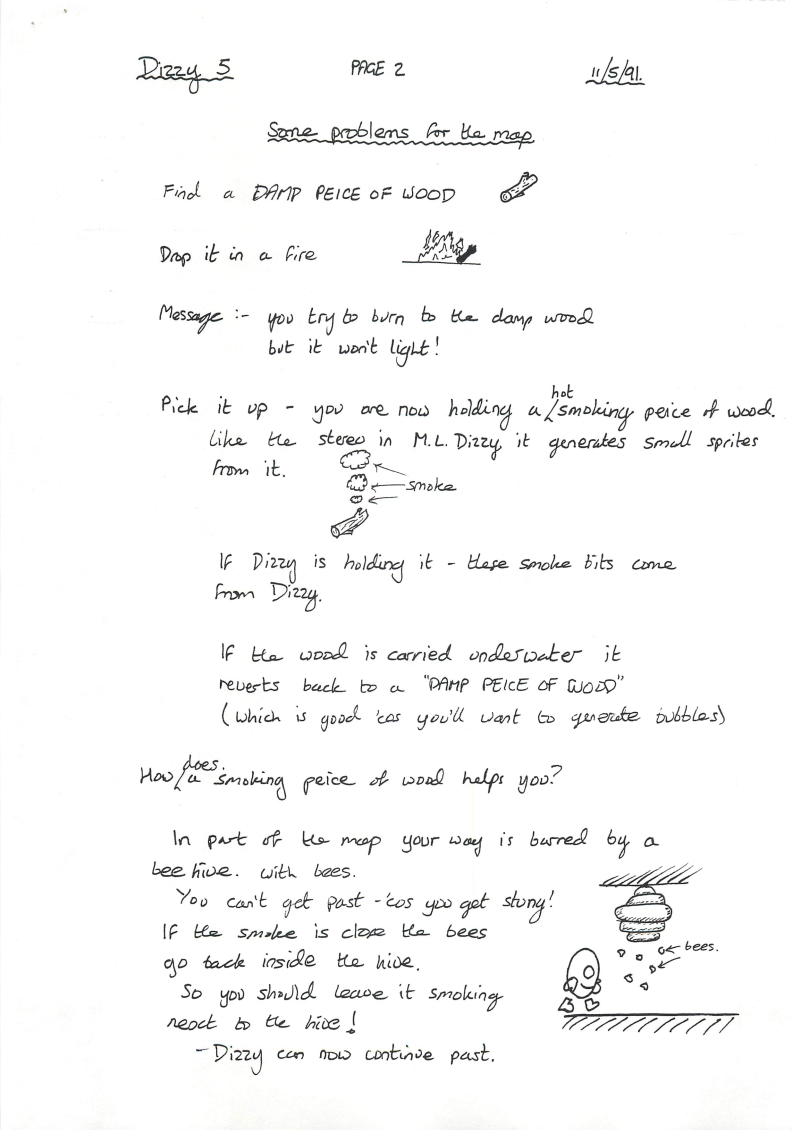 Dizzy 5 PAGE 2 11/5/91.
Some problems for the map
Find a DAMP PEICE OF WOOD
Drop it in a fire
Message :- you try to burn to the damp wood
but it won't light!
Pick it up - you are now holding a hot smoking peice of wood.
Like the stereo in M.L. Dizzy, it generates small sprites
from it.
smoke
If Dizzy is holding it - these smoke bits come
from Dizzy.
If the wood is carried underwater it
reverts back to a "DAMP PEICE OF WOOD"
(which is good 'cos you'll want to generate bubbles)
How does. a smoking peice of wood helps you?
In part of the map your way is barred by a
bee hive. with bees.
You can't get past - 'cos you get stung!
If the smoke is close the bees
go back inside the hive.
bees.
So you should leave it smoking
next to the hive!
- Dizzy can now continue past.